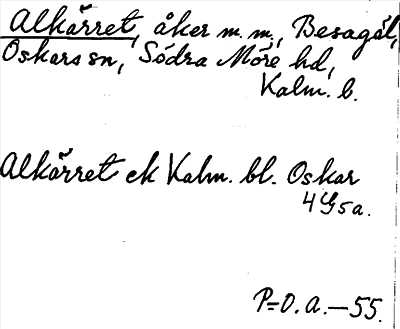 Alkärret, åker m.m., Besagöl,
Oskars sn, Södra Möre hd,
Kalm. l.
Alkärret ek Kalm. bl. Oskar
4G5a.
P=O.A.—55.